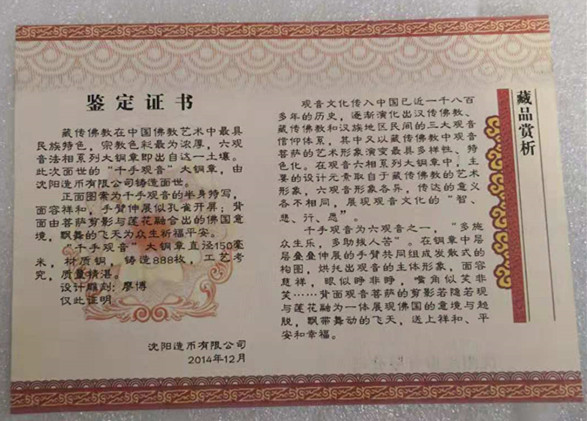 鉴定证书
藏传佛教在中国佛教艺术中最具
民族特色,宗教色彩最为浓厚,六观
音法相系列大铜章即出自这一土壤。
此次面世的“千手观音”大铜章,由
沈阳造币有限公司铸造面世。
正面图案为千手观音的半身特写,
面容祥和,手臂伸展似孔雀开屏;背
面由菩萨剪影与莲花融合出的佛国意
境,飘舞的飞天为众生祈福平安。
“千手观音”大铜章直径150毫
米,材质铜,铸造888枚,工艺考
究,质量精湛。
设计雕刻:廖博
仅此证明
沈阳造币有限公司
2014年12月
藏品赏析
观音文化传入中国已近一千八百
多年的历史,逐渐演化出汉传佛教、
藏传佛教和汉族地区民间的三大观音
信仰体系,其中又以藏传佛教中观音
菩萨的艺术形象演变最具多样性、特
色化。在观音六相系列大铜章中,主
要的设计元素取自于藏传佛教的艺术
形象,六观音形象各异,传达的意义
各不相同,展现观音文化的“智、
慧、行、愿”。
千手观音为六观音之一,“多施
众生乐,多助残人苦”。在铜章中层
层叠叠伸展的手臂共同组成发散式的
构图,烘托出观音的主体形象,面容
慈祥,眼似睁非睁,嘴角似笑非
笑……背面观音菩萨的剪影若隐若现
与莲花融为一体展现佛国的意境与超
脱,飘带舞动的飞天,送上祥和、平
安和幸福。